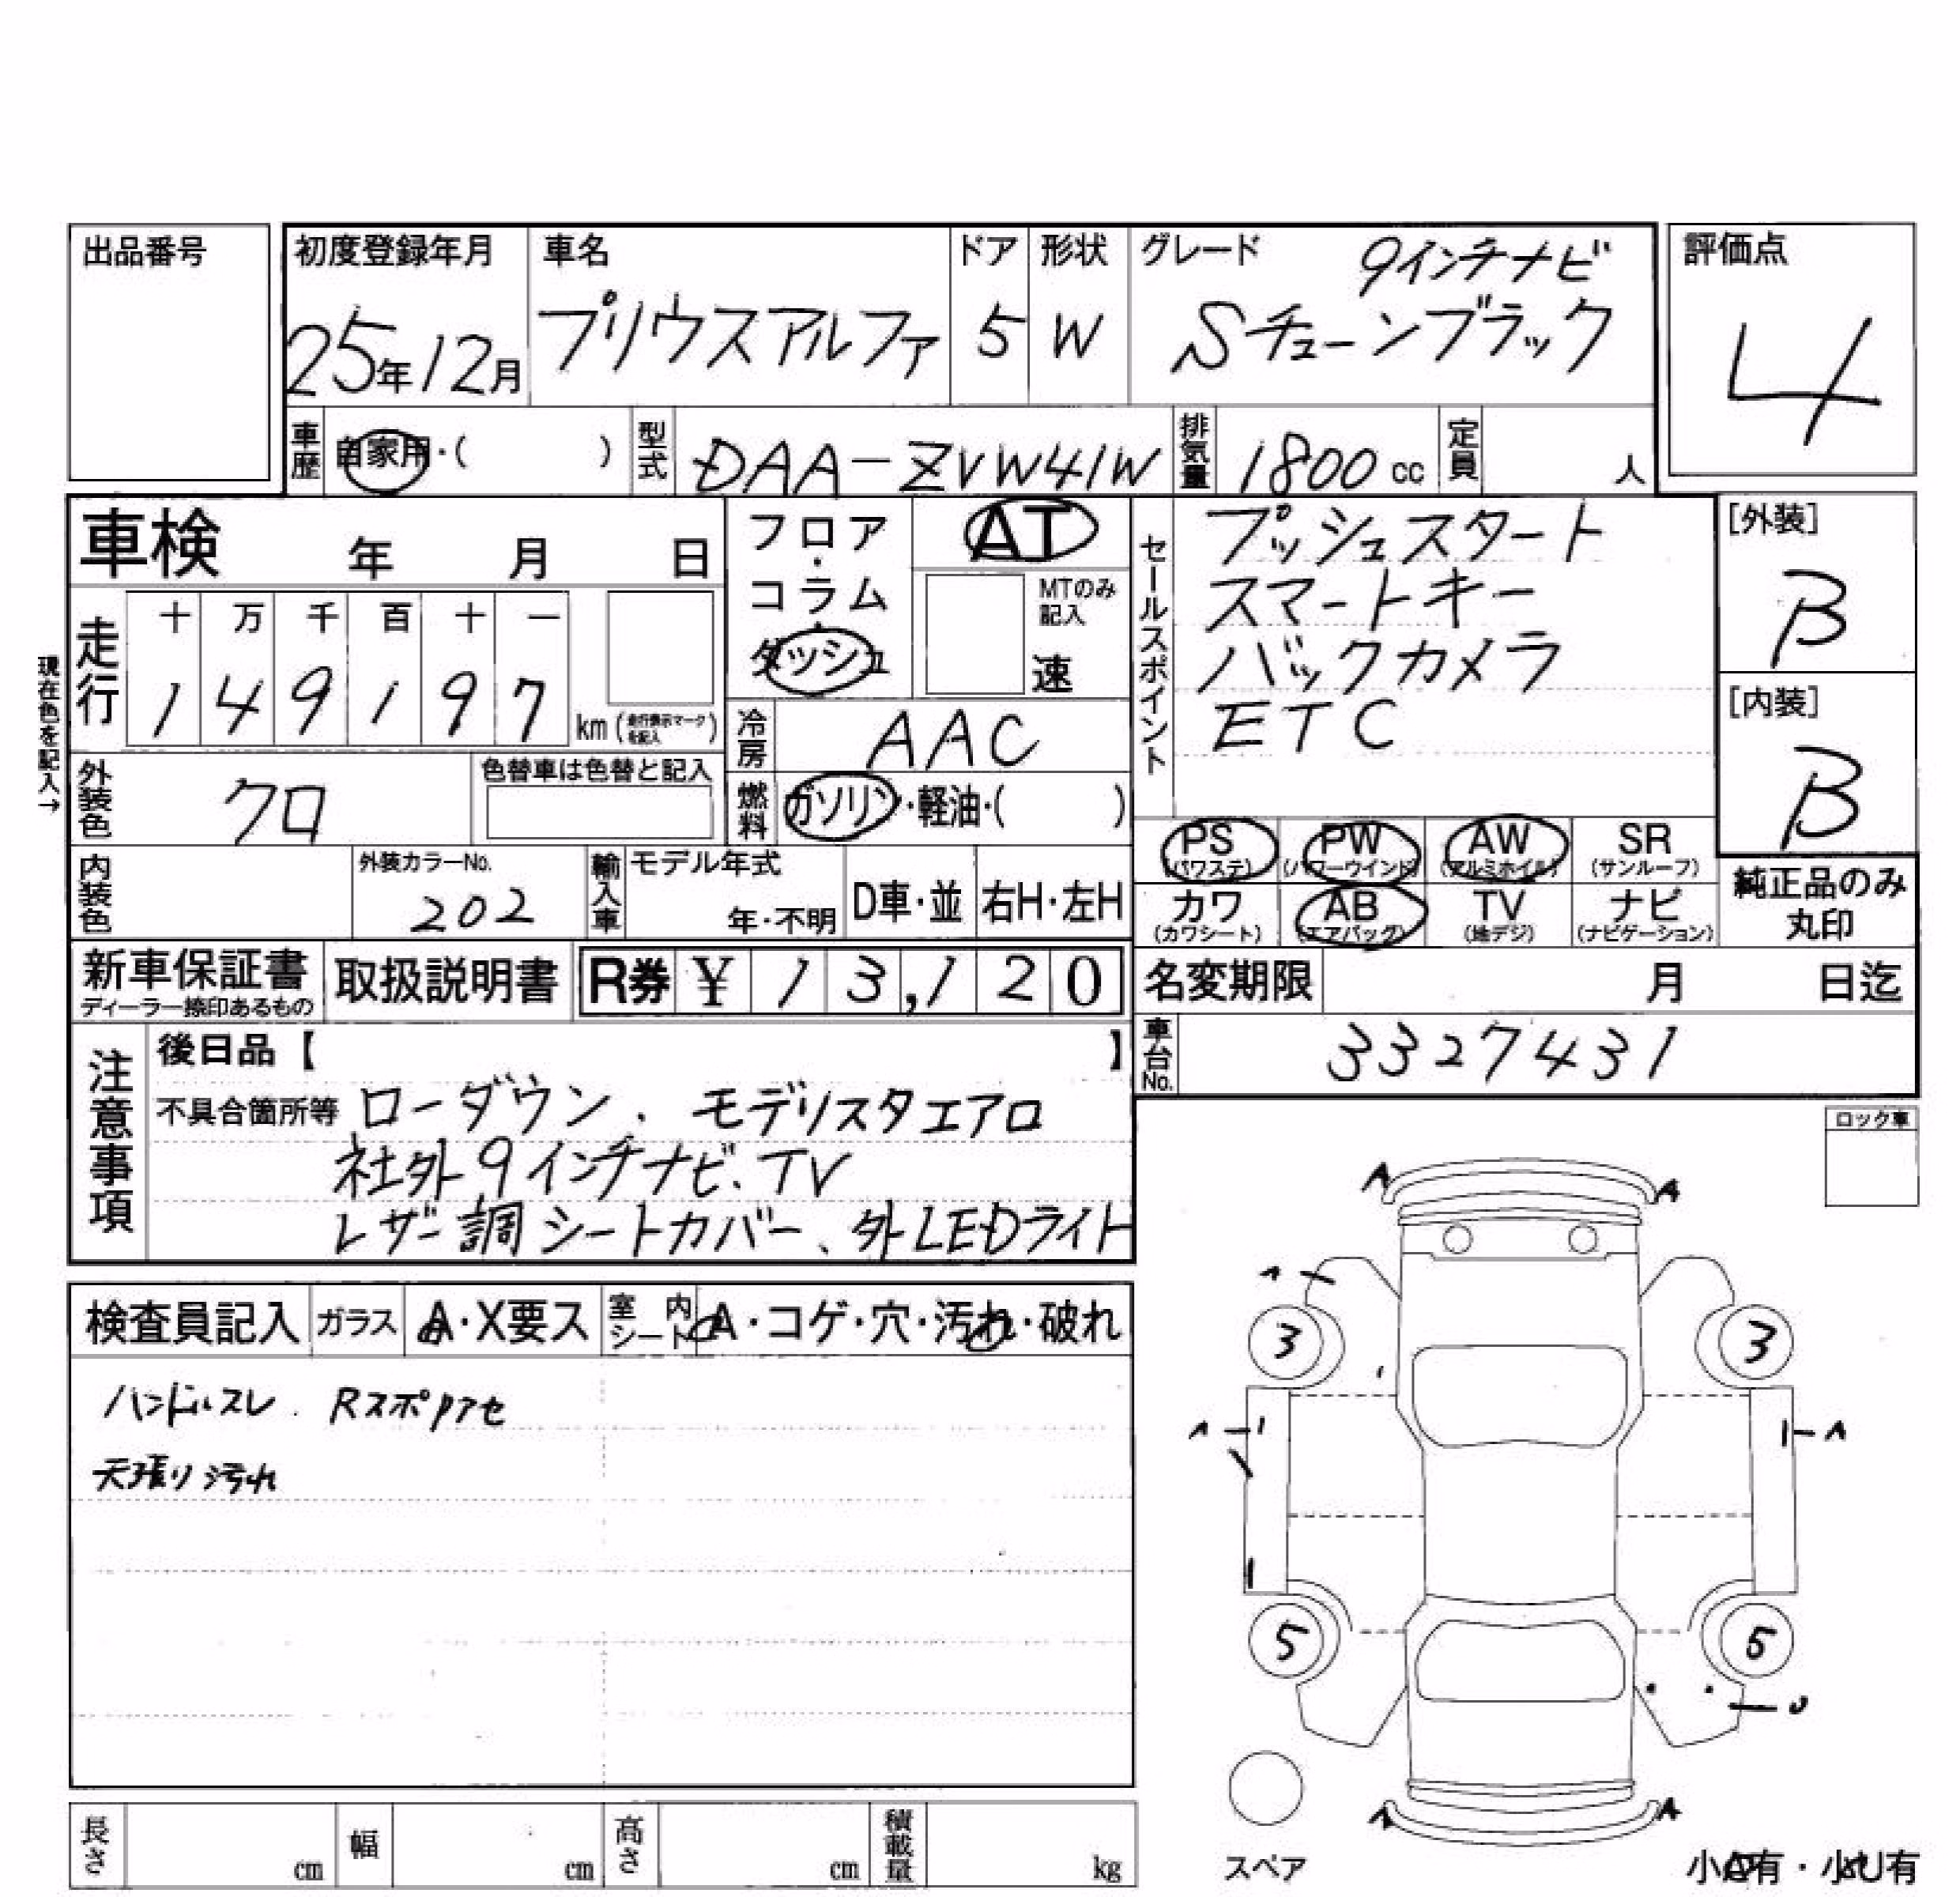 出品番号
初度登録年月 車名 ドア 形状 グレード 9インチナビ 評価点
25年12月 プリウスアルファ 5 W Sチューンブラック 4
車歴 自家用・( ) 型式 DAA-ZVW41W 排気量 1800cc 定員 人
車検 年 月 日
フロア・コラム・ダッシュ
AT
MTのみ記入
速
走行 十 万 千 百 十 一
1 4 9 1 9 7 km (走行表示マークを記入)
現在色を記入→
冷房 AAC
燃料 ガソリン・軽油・( )
外装色 クロ 色替車は色替と記入
内装色 外装カラーNo. 202
輸入車 モデル年式 年・不明 D車・並 右H・左H
セールスポイント
プッシュスタート
スマートキー
バックカメラ
ETC
[外装]
B
[内装]
B
PS (パワステ) PW (パワーウインド) AW (アルミホイル) SR (サンルーフ)
カワ (カワシート) AB (エアバッグ) TV (地デジ) ナビ (ナビゲーション)
純正品のみ丸印
新車保証書 ディーラー捺印あるもの 取扱説明書 R券 ¥ 13,120
名変期限 月 日迄
車台No. 3327431
注意事項
後日品【 】
不具合箇所等 ローダウン、モデリスタエアロ
社外9インチナビ、TV
レザー調シートカバー、外LEDライト
ロック車
検査員記入 ガラス A・X要ス 室内シート A・コゲ・穴・汚れ・破れ
ハンドルスレ Rスポアセ
天張り汚れ
A A
A
3 3
A A
5 5
U
A A
スペア
小A有・小U有
長さ cm 幅 cm 高さ cm 積載量 kg